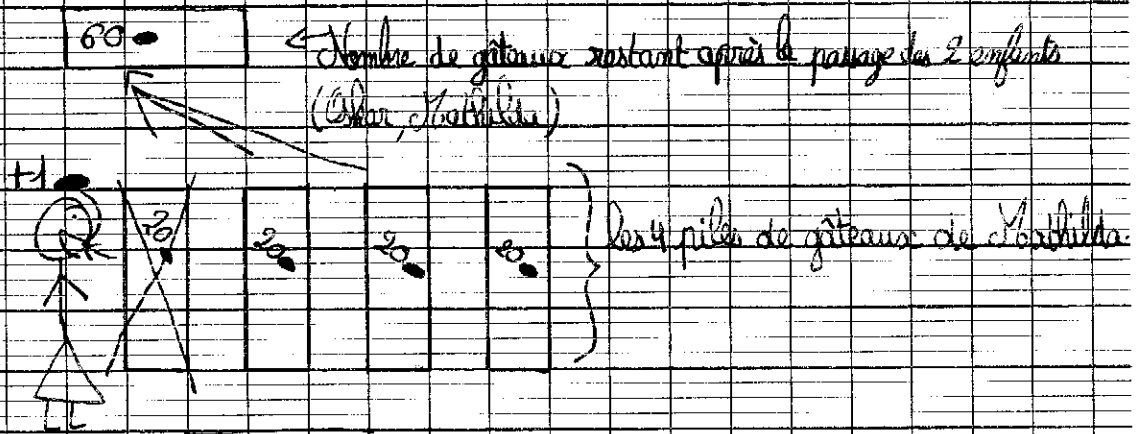 60
Nombre de gâteaux restant après le passage des 2 enfants
(Oskar, Mathilda)
+1
20 20 20 20
les 4 piles de gâteaux de Mathilda